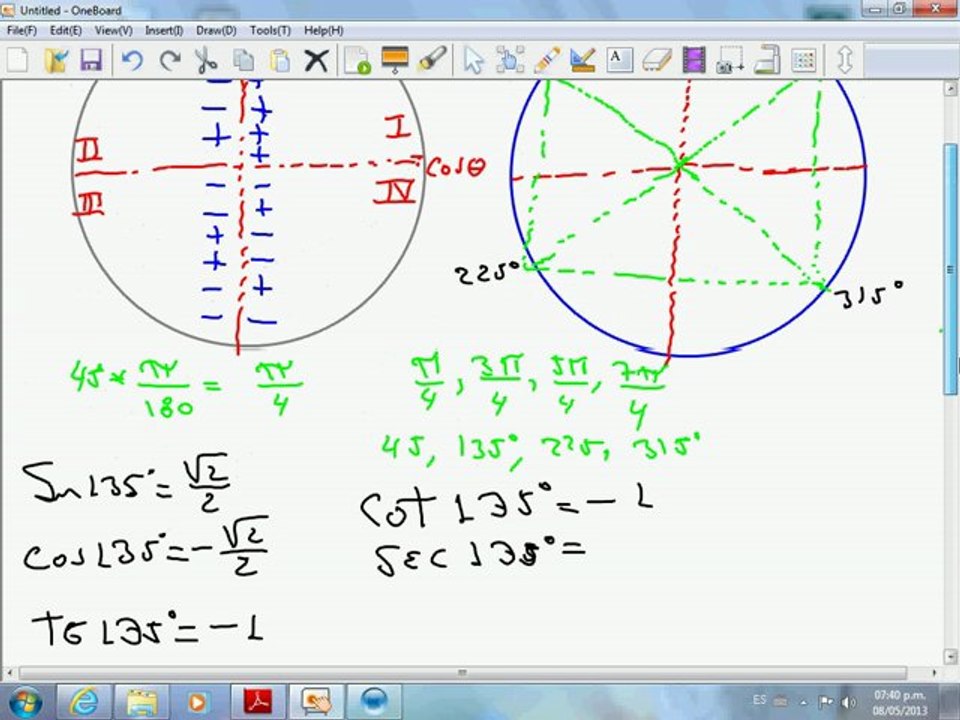 Untitled - OneBoard
File(F) Edit(E) View(V) Insert(I) Draw(D) Tools(T) Help(H)
− +
− +
+ +
+
II I
cosθ
III IV
− −
− +
+ −
+ −
− +
− −
225°
315°
45° * π/180 = π/4
π/4, 3π/4, 5π/4, 7π/4
45, 135°, 225, 315°
Sn 135° = √2/2
Cot 135° = -1
Cos 135° = -√2/2
Sec 135° =
TG 135° = -1
ES
07:40 p.m.
08/05/2013